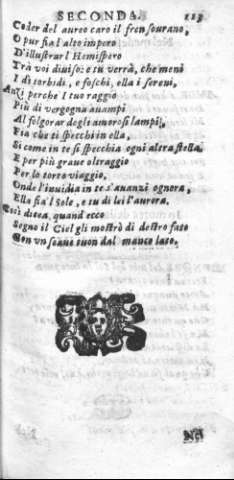 SECONDA. 113
Coder del aureo caro il fren sourano,
O pur fia l'alto impero
D'illustrar l'Hemispero
Trà voi diuiso: e tu verrà, che meni
I dì torbidi, e foschi, ella i sereni,
Anzi perche 'l tuo raggio
Più di vergogna auampi
Al folgorar degli amorosi lampi,
Fia che ti specchi in ella,
Si come in te si specchia ogni altra stella.
E per più graue oltraggio
Per lo torto viaggio,
Onde l'inuidia in te s'auanzi ognora,
Ella fia'l Sole, e tu di lei l'aurora.
Così dicea, quand' ecco
Segno il Ciel gli mostrò di destro fato
Con vn soaue tuon dal manco lato.